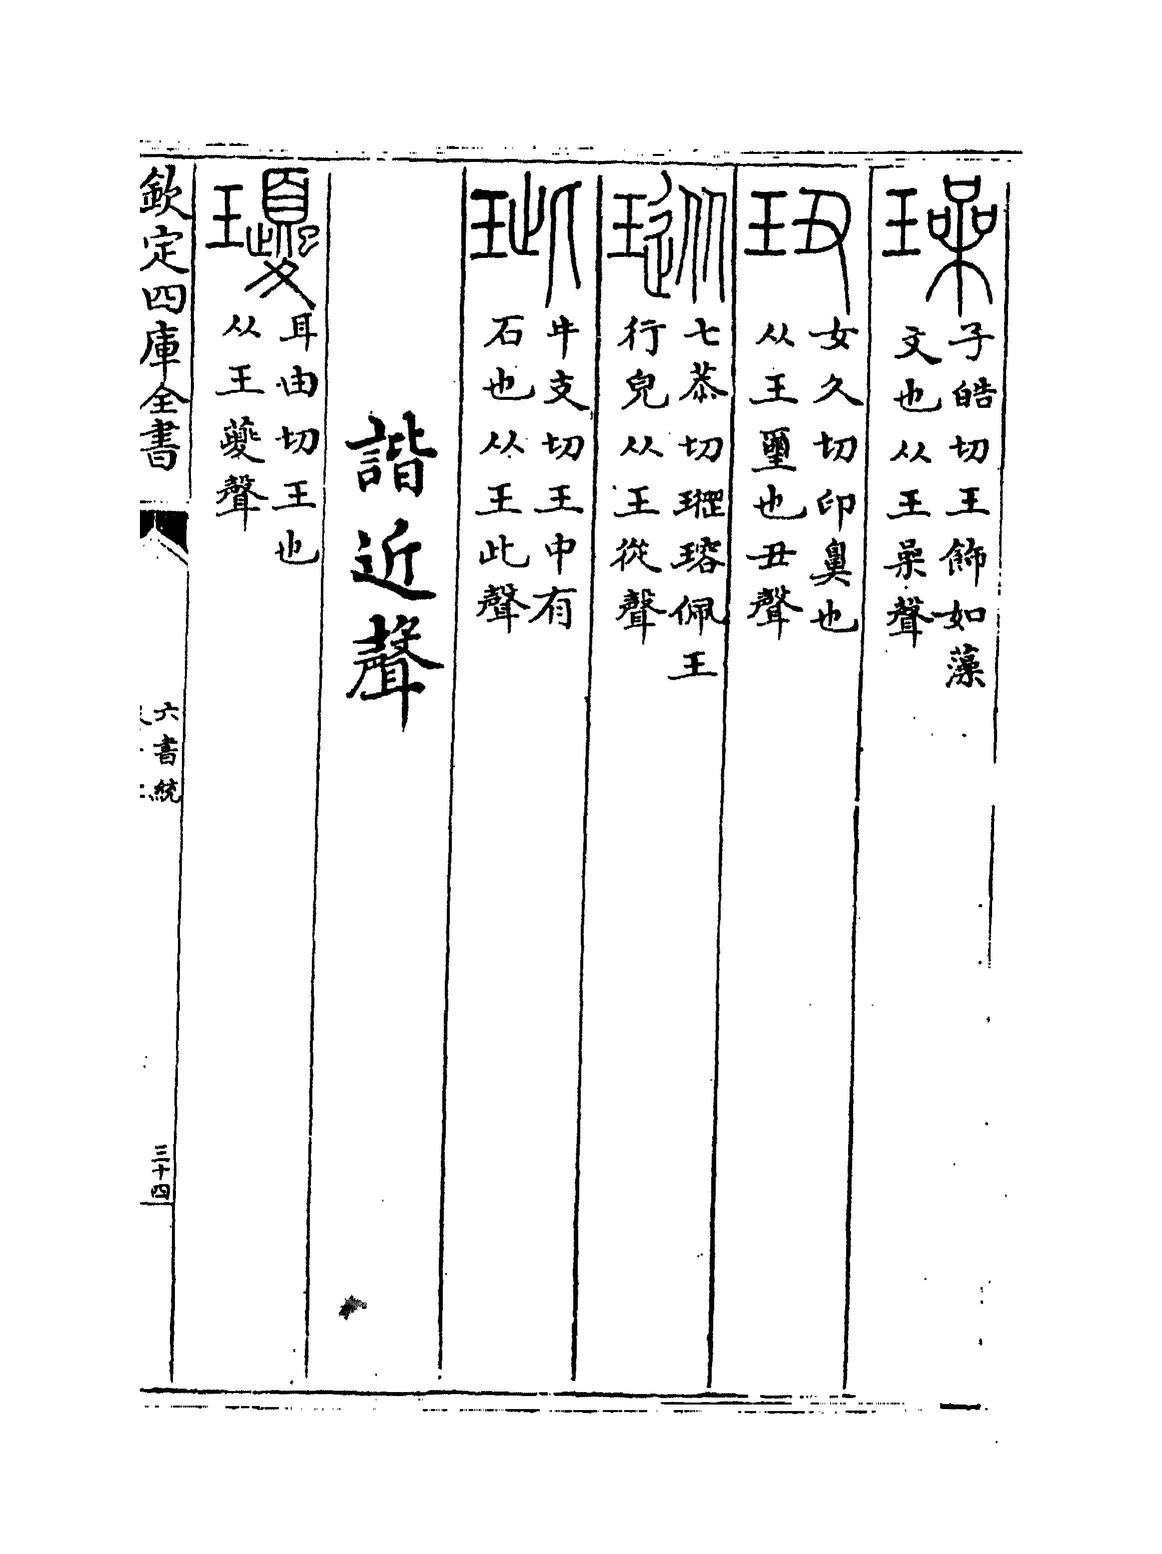 璪
子皓切王飾如藻
文也从王喿聲
㺲
女久切印鼻也
从王璽也丑聲
瑽
七恭切瑽瑢佩王
行皃从王從聲
玼
牛支切王中有
石也从王此聲
諧近聲
瓇
耳由切王也
从王夒聲
欽定四庫全書
六書統
三十四